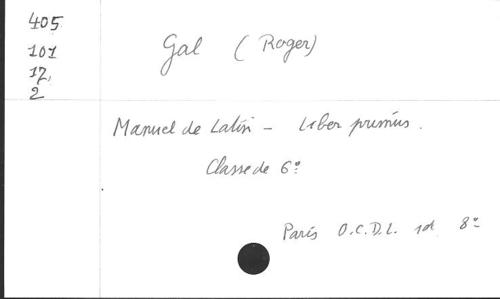 405
101
12,
2
Gal ( Roger)
Manuel de Latin - Liber primus.
Classe de 6e
Paris O.C.D.L. sd 8°